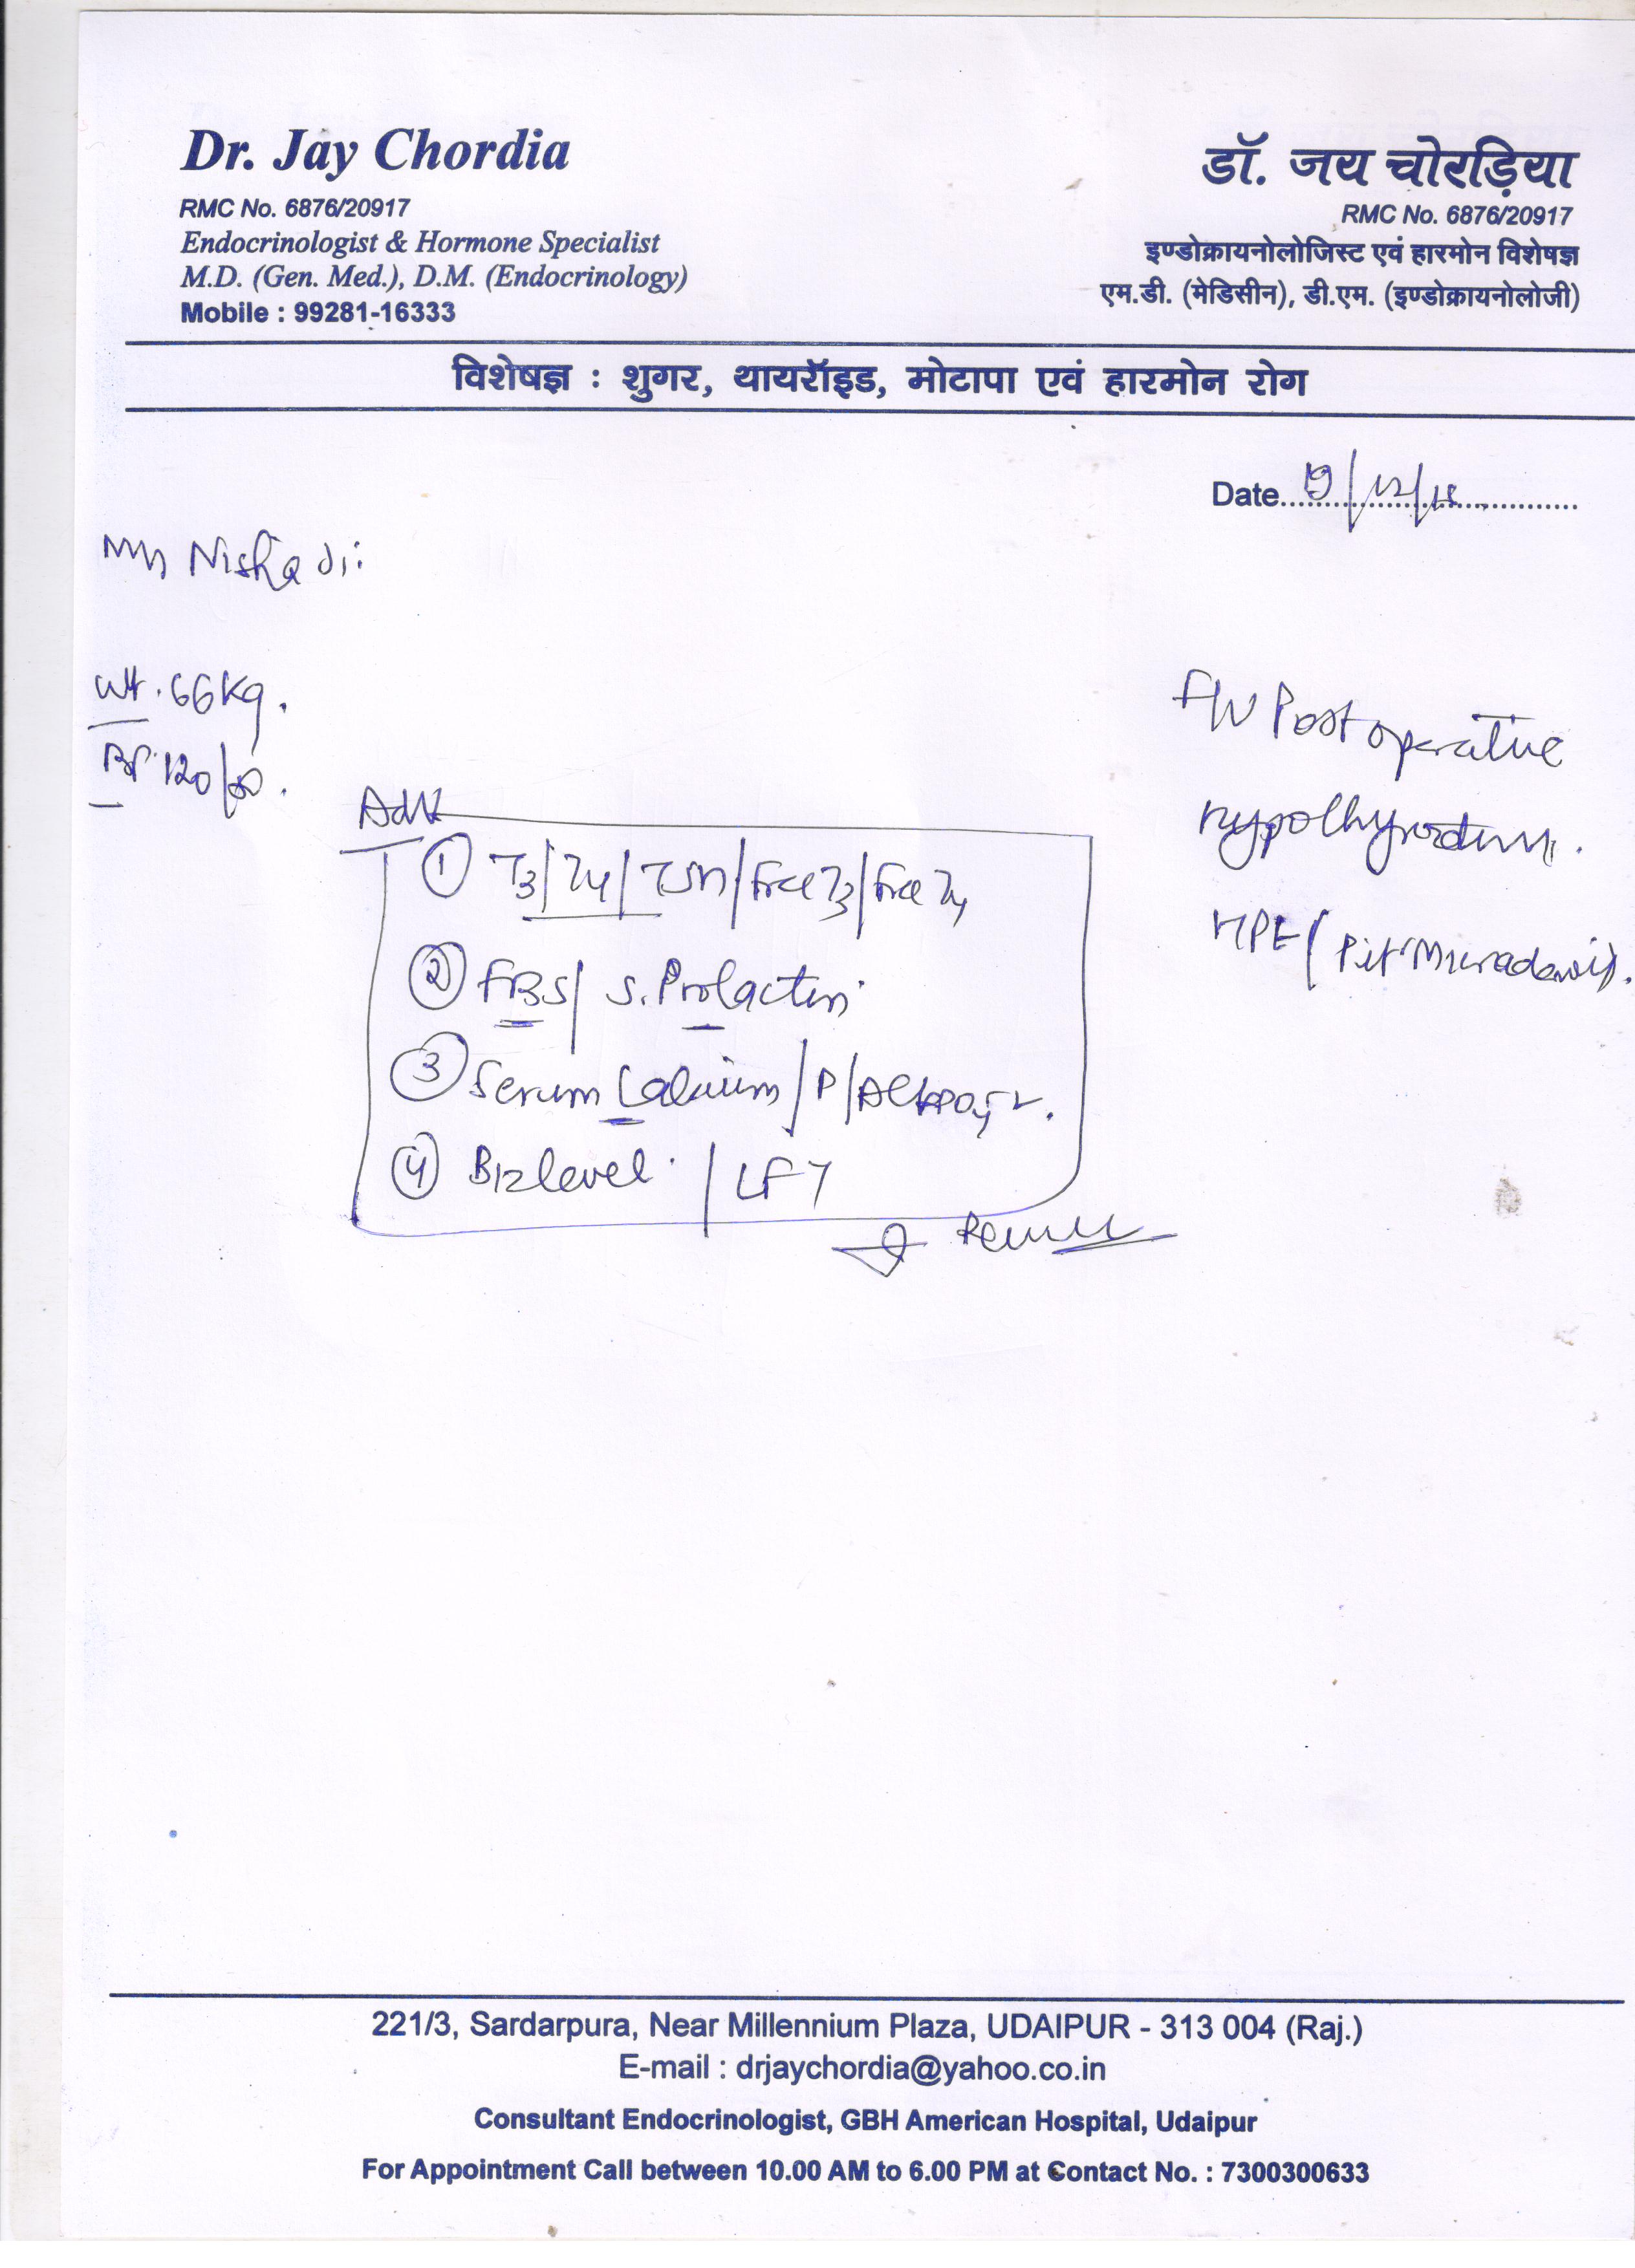 Dr. Jay Chordia
RMC No. 6876/20917
Endocrinologist & Hormone Specialist
M.D. (Gen. Med.), D.M. (Endocrinology)
Mobile : 99281-16333
डॉ. जय चोरड़िया
RMC No. 6876/20917
इण्डोक्रायनोलोजिस्ट एवं हारमोन विशेषज्ञ
एम.डी. (मेडिसीन), डी.एम. (इण्डोक्रायनोलोजी)
विशेषज्ञ : शुगर, थायरॉइड, मोटापा एवं हारमोन रोग
Date 19/12/18
Nisha Ji:
Wt. 66Kg.
BP 120/80.
F/U Post operative
hypothyroidism.
HPE (
Adv
① T3/T4/TSH/Free T3/Free T4
② FBS/ S. Prolactin
③ Serum Calcium/P/Alkpo4
④ B12 level / LFT
Review
221/3, Sardarpura, Near Millennium Plaza, UDAIPUR - 313 004 (Raj.)
E-mail : drjaychordia@yahoo.co.in
Consultant Endocrinologist, GBH American Hospital, Udaipur
For Appointment Call between 10.00 AM to 6.00 PM at Contact No. : 7300300633